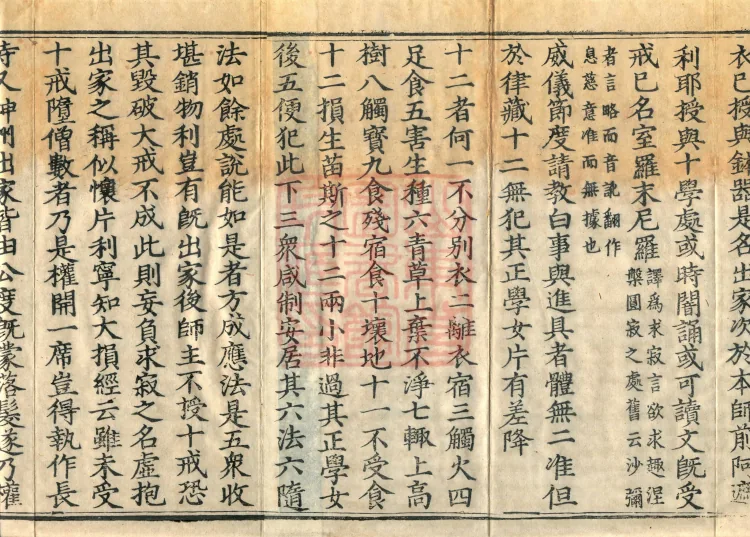 衣已授與鉢器是名出家次於本師前阿遮
利耶授與十學處或時闇誦或可讀文既受
戒已名室羅末尼羅譯爲求寂言欲求趣涅
槃圓寂之處舊云沙彌
者言略而音訛翻作
息慈意准而無據也
威儀節度請教白事與進具者體無二准但
於律藏十二無犯其正學女片有差降
十二者何一不分別衣二離衣宿三觸火四
足食五害生種六青草上棄不淨七輙上高
樹八觸寶九食殘宿食十壞地十一不受食
十二損生苗斯之十二兩小非過其正學女
後五便犯此下三衆咸制安居其六法六隨
法如餘處說能如是者方成應法是五衆收
堪銷物利豈有旣出家後師主不授十戒恐
其毀破大戒不成此則妄負求寂之名虛抱
出家之稱似懷片利寧知大損經云雖未受
十戒墮僧數者乃是權開一席豈得執作長
又出家皆由公度旣蒙落髮遂乃權